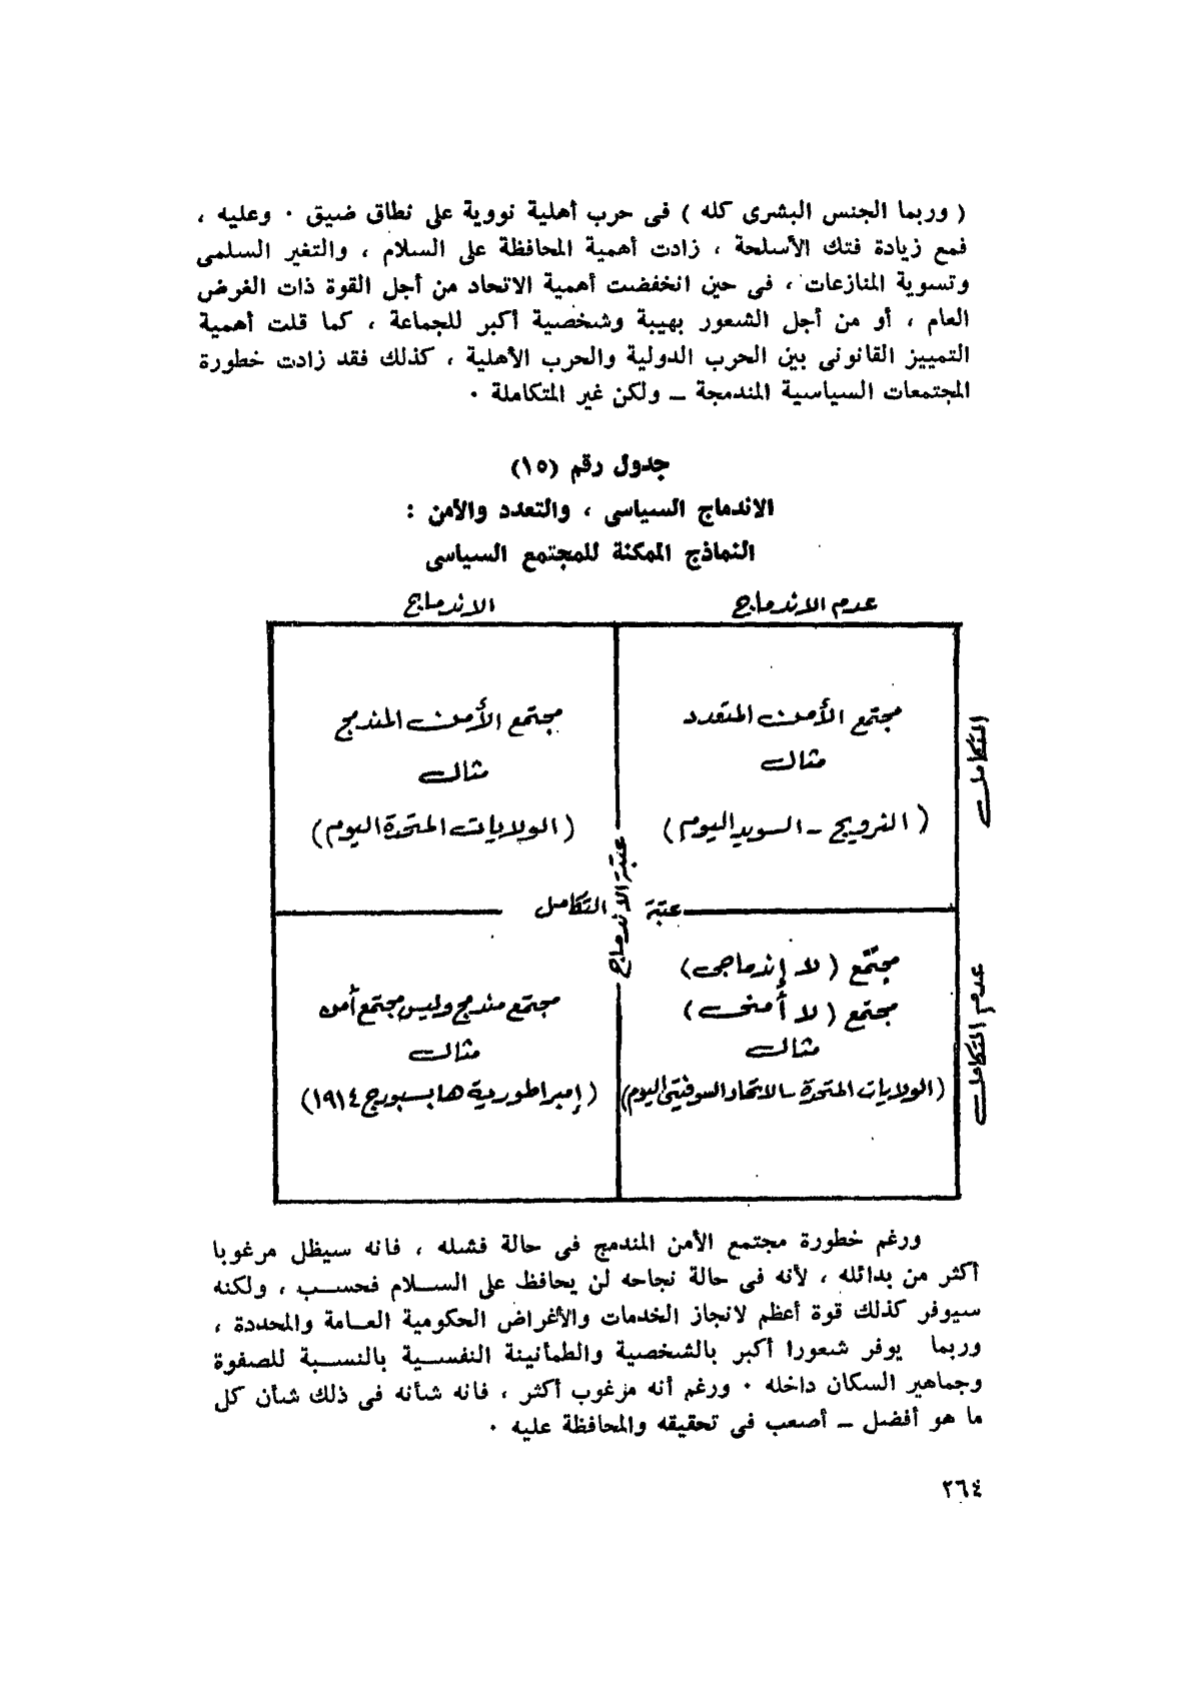 ( وربما الجنس البشرى كله ) فى حرب أهلية نووية على نطاق ضيق ٠ وعليه ،
فمع زيادة فتك الأسلحة ، زادت أهمية المحافظة على السلام ، والتغير السلمى
وتسوية المنازعات ، فى حين انخفضت أهمية الاتحاد من أجل القوة ذات الغرض
العام ، أو من أجل الشعور بهيبة وشخصية أكبر للجماعة ، كما قلت أهمية
التمييز القانونى بين الحرب الدولية والحرب الأهلية ، كذلك فقد زادت خطورة
المجتمعات السياسية المندمجة ـ ولكن غير المتكاملة ٠
جدول رقم (١٥)
الاندماج السياسى ، والتعدد والأمن :
النماذج الممكنة للمجتمع السياسى
عدم الاندماج
الاندماج
المتكامل
مجتمع الأمن المتعدد
مثال
( النرويج ـ السويد اليوم )
مجتمع الأمن المندمج
مثال
( الولايات المتحدة اليوم )
عتبة الاندماج
عتبة التكامل
عدم التكامل
مجتمع ( لا إندماجى )
مجتمع ( لا أمنى )
مثال
( الولايات المتحدة ـ الاتحاد السوفيتى اليوم )
مجتمع مندمج وليس مجتمع أمن
مثال
( إمبراطورية هابسبورج ١٩١٤ )
ورغم خطورة مجتمع الأمن المندمج فى حالة فشله ، فانه سيظل مرغوبا
أكثر من بدائله ، لأنه فى حالة نجاحه لن يحافظ على الســلام فحســب ، ولكنه
سيوفر كذلك قوة أعظم لانجاز الخدمات والأغراض الحكومية العــامة والمحددة ،
وربما يوفر شعورا أكبر بالشخصية والطمأنينة النفســية بالنســبة للصفوة
وجماهير السكان داخله ٠ ورغم أنه مرغوب أكثر ، فانه شأنه فى ذلك شأن كل
ما هو أفضل ـ أصعب فى تحقيقه والمحافظة عليه ٠
٢٦٤